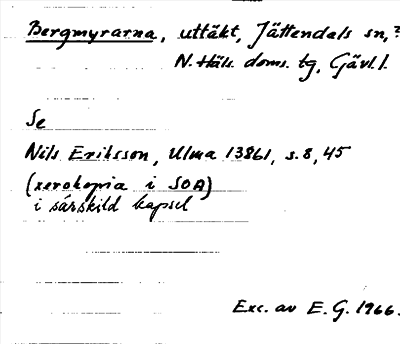 Bergmyrarna, uttäkt, Jättendals sn,?
N. Häls. doms. tg, Gävl. l.
Se
Nils Eriksson, Ulma 13861, s. 8, 45
(xerokopia i SOA)
i särskild kapsel
Exc. av E. G. 1966.